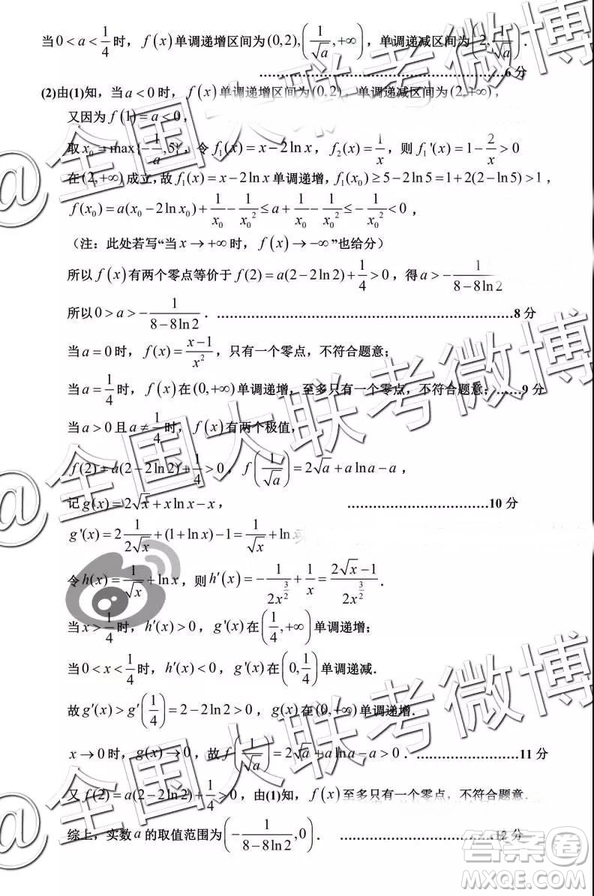 当 0 < a < 1/4 时，f(x) 单调递增区间为 (0,2), (1/√a, +∞)，单调递减区间为 (2, 1/√a)．
……………………………………6 分
(2)由(1)知，当 a < 0 时，f(x) 单调递增区间为 (0,2)，单调递减区间为 (2,+∞)，
又因为 f(1) = a < 0，
取 x₀ = max{-1/a, 5}，令 f₁(x) = x - 2ln x，f₂(x) = 1/x，则 f₁'(x) = 1 - 2/x > 0
在 (2,+∞) 成立，故 f₁(x) = x - 2ln x 单调递增，f₁(x₀) ≥ 5 - 2ln5 = 1 + 2(2 - ln5) > 1，
f(x₀) = a(x₀ - 2ln x₀) + 1/x₀ - 1/x₀² ≤ a + 1/x₀ - 1/x₀² ≤ -1/x₀² < 0，
（注：此处若写“当 x → +∞ 时，f(x) → -∞”也给分）
所以 f(x) 有两个零点等价于 f(2) = a(2 - 2ln2) + 1/4 > 0，得 a > -1/(8-8ln2)
所以 0 > a > -1/(8-8ln2)．……………………………………8 分
当 a = 0 时，f(x) = (x-1)/x²，只有一个零点，不符合题意；
当 a = 1/4 时，f(x) 在 (0,+∞) 单调递增，至多只有一个零点，不符合题意；……9 分
当 a > 0 且 a ≠ 1/4 时，f(x) 有两个极值，
f(2) = a(2 - 2ln2) + 1/4 > 0，f(1/√a) = 2√a + a ln a - a，
记 g(x) = 2√x + x ln x - x，……………………………10 分
g'(x) = 2 1/(2√x) + (1 + ln x) - 1 = 1/√x + ln x
令 h(x) = 1/√x + ln x，则 h'(x) = -1/(2x^(3/2)) + 1/x = (2√x - 1)/(2x^(3/2))．
当 x > 1/4 时，h'(x) > 0，g'(x) 在 (1/4, +∞) 单调递增；
当 0 < x < 1/4 时，h'(x) < 0，g'(x) 在 (0, 1/4) 单调递减．
故 g'(x) > g'(1/4) = 2 - 2ln2 > 0，g(x) 在 (0,+∞) 单调递增．
x → 0 时，g(x) → 0，故 f(1/√a) = 2√a + a ln a - a > 0．……………………11 分
又 f(2) = a(2 - 2ln2) + 1/4 > 0，由(1)知，f(x) 至多只有一个零点，不符合题意．
综上，实数 a 的取值范围为 (-1/(8-8ln2), 0)．……………………………12 分
@全国大联考微博
@全国大联考微博
@全国大联考微博
答案圈
MXQE.COM